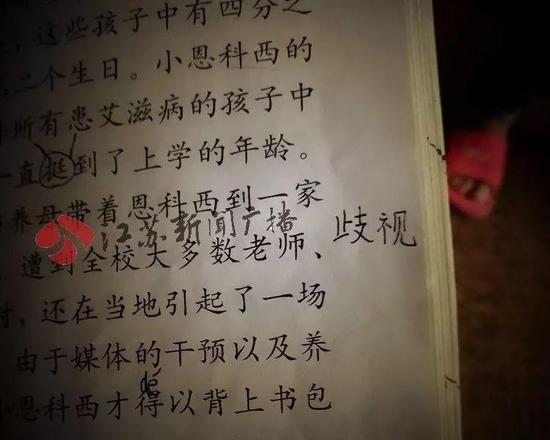 ，这些孩子中有四分之
二个生日。小恩科西的
所有患艾滋病的孩子中
一直挺到了上学的年龄。
养母带着恩科西到一家
江苏新闻广播
遭到全校大多数老师、
歧视
，还在当地引起了一场
由于媒体的干预以及养
dé
小恩科西才得以背上书包